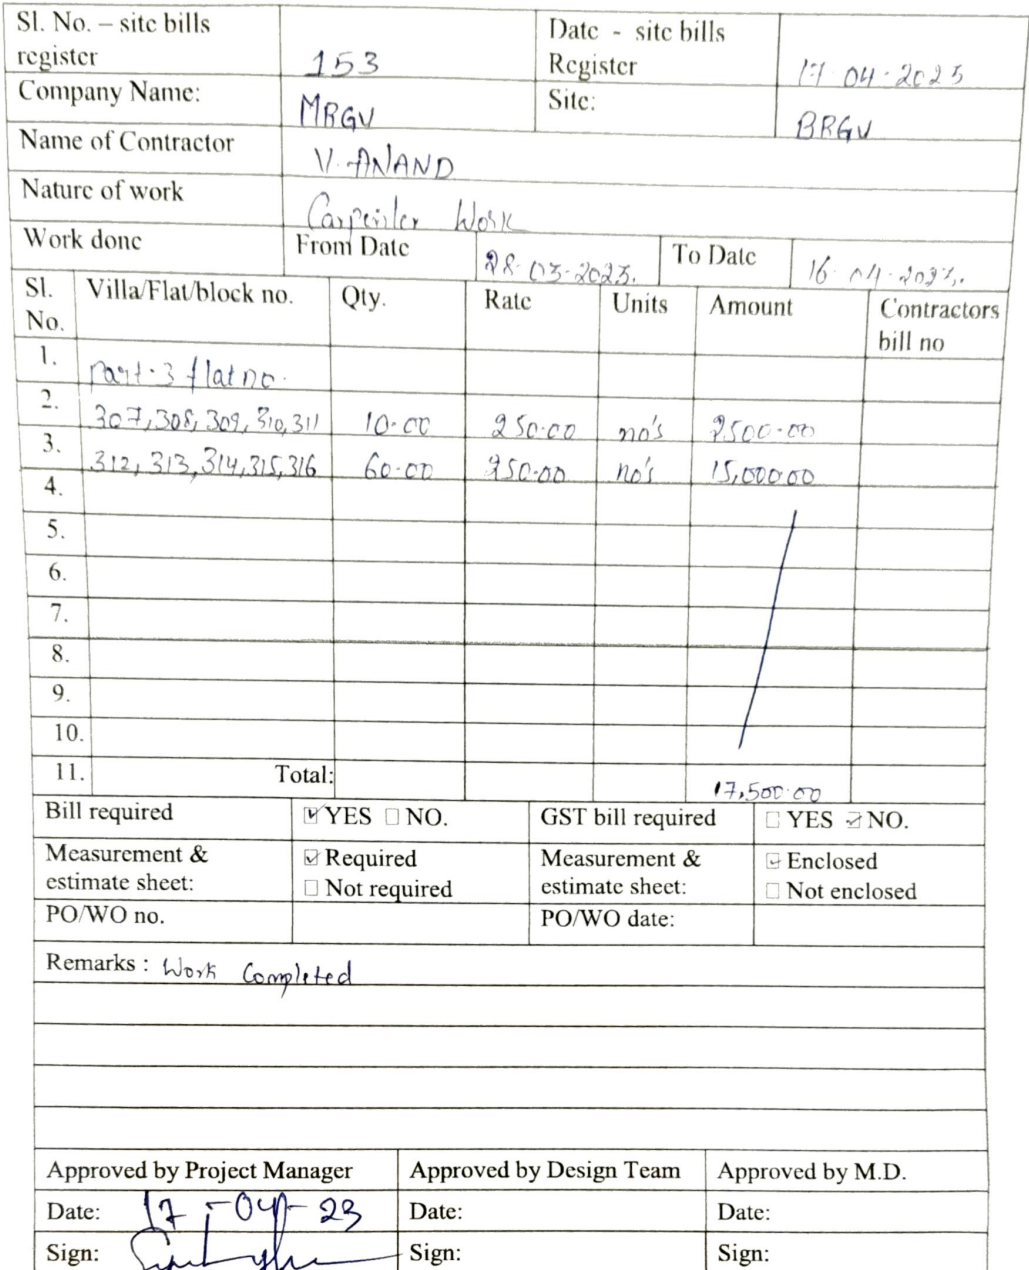 Sl. No. – site bills Date - site bills
register 153 Register 17-04-2023
Company Name: MRGV Site: BRGV
Name of Contractor V. ANAND
Nature of work Carpenter Work
Work done From Date 28-03-2023. To Date 16-04-2023.
Sl. No. Villa/Flat/block no. Qty. Rate Units Amount Contractors bill no
1. part-3 flat no.
2. 307, 308, 309, 310, 311 10-00 250-00 no's 2500-00
3. 312, 313, 314, 315, 316 60-00 250-00 no's 15,000-00
4.
5.
6.
7.
8.
9.
10.
11. Total: 17,500-00
Bill required ☑YES ☐NO. GST bill required ☐ YES ☑NO.
Measurement & ☑ Required Measurement & ☑ Enclosed
estimate sheet: ☐ Not required estimate sheet: ☐ Not enclosed
PO/WO no. PO/WO date:
Remarks : Work Completed
Approved by Project Manager Approved by Design Team Approved by M.D.
Date: 17-04-23 Date: Date:
Sign: Sign: Sign: